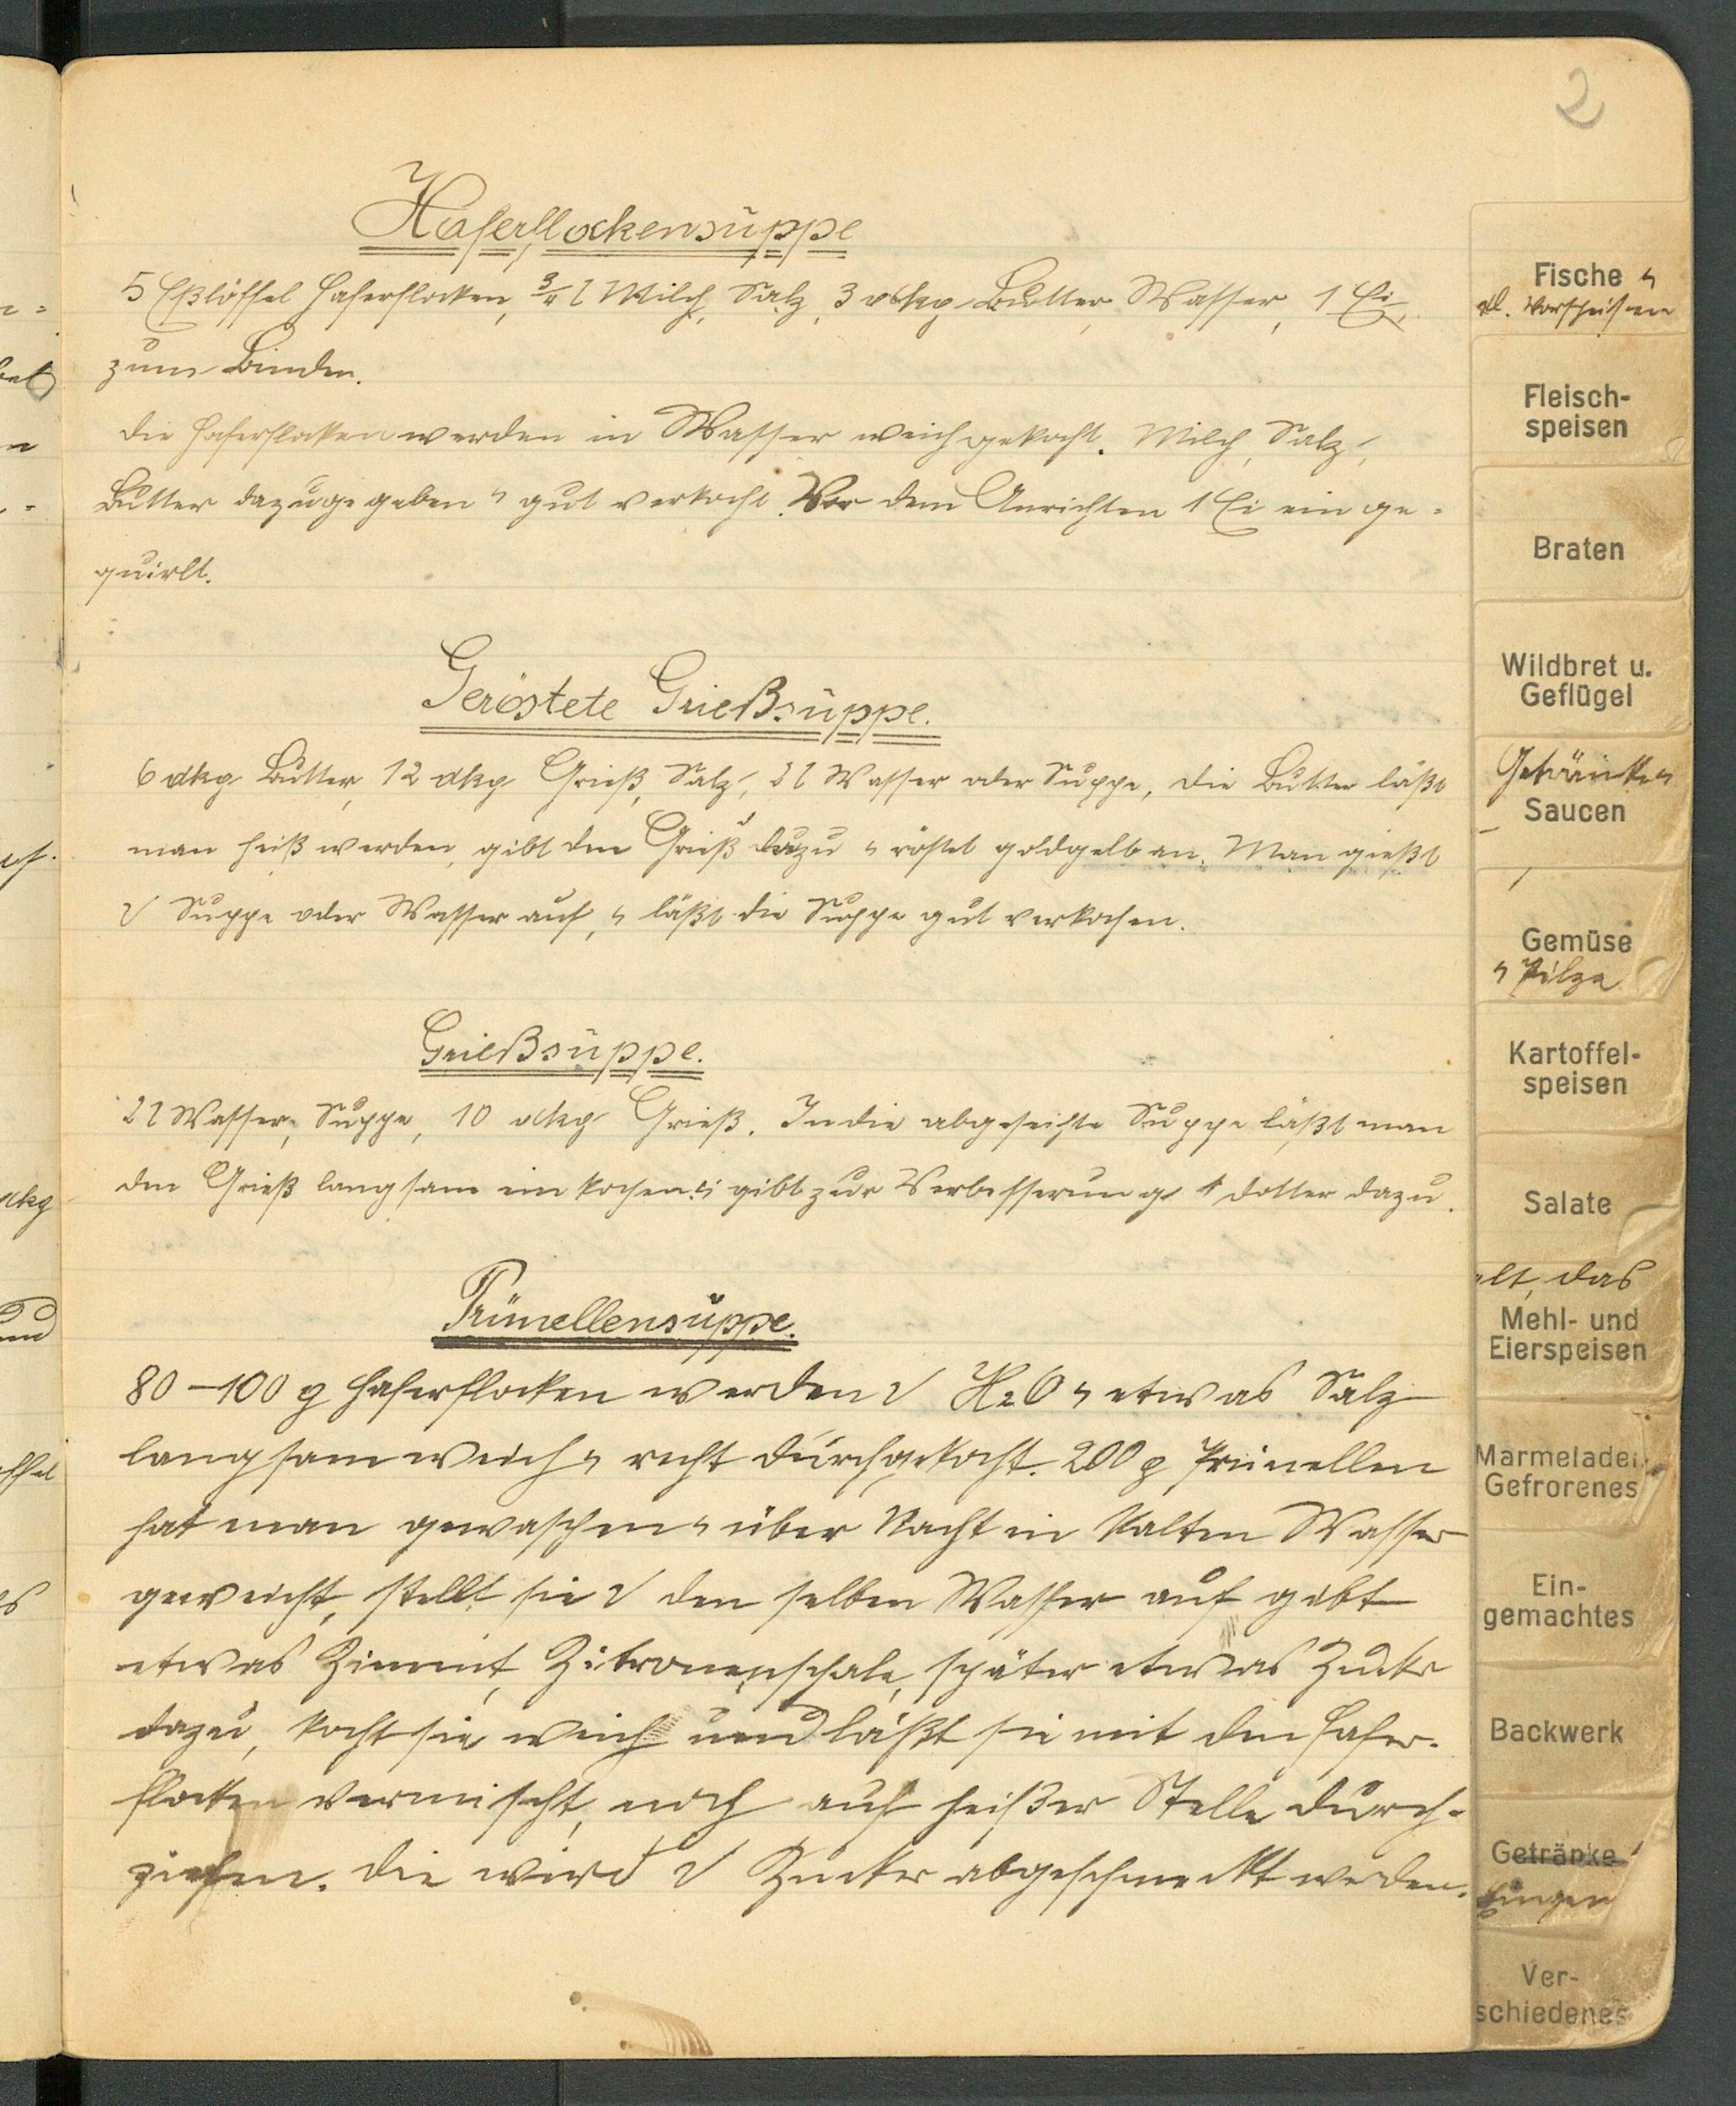 2
Haferflockensuppe
5 Eßlöffel Haferflocken, 3/4 l Milch, Salz, 3 dkg Butter, Wasser, 1 Ei
zum Binden.
Die Haferflocken werden in Wasser weichgekocht. Milch, Salz,
Butter dazugegeben u gut verkocht. Vor dem Anrichten 1 Ei einge-
quirlt.
Geröstete Grießsuppe.
6 dkg Butter, 12 dkg Grieß, Salz, 2 l Wasser oder Suppe, die Butter läßt
man heiß werden, gibt den Grieß dazu u röstet goldgelb an. Man gießt
Suppe oder Wasser auf, u läßt die Suppe gut verkochen.
Grießsuppe.
2 l Wasser, Suppe, 10 dkg Grieß. In die abgeseihte Suppe läßt man
den Grieß langsam einkochen u gibt zur Verbesserung 1 Dotter dazu.
Prünellensuppe.
80-100 g Haferflocken werden H2O u etwas Salz
langsam weich u recht durchgekocht. 200 g Prünellen
hat man gewaschen u über Nacht in kalten Wasser
geweicht, stellt sie den selben Wasser auf gibt
etwas Zimmt, Zitronenschale, später etwas Zucker
dazu, kocht sie weich und läßt sie mit den Hafer-
flocken vermischt, noch auf heißer Stelle durch-
ziehen. Die wird Zucker abgeschmeckt werden.
Fische u
Vorspeisen
Fleisch-
speisen
Braten
Wildbret u.
Geflügel
Getränke
Saucen
Gemüse
u Pilze
Kartoffel-
speisen
Salate
Mehl- und
Eierspeisen
Marmeladen
Gefrorenes
Ein-
gemachtes
Backwerk
Getränke
Ver-
schiedenes